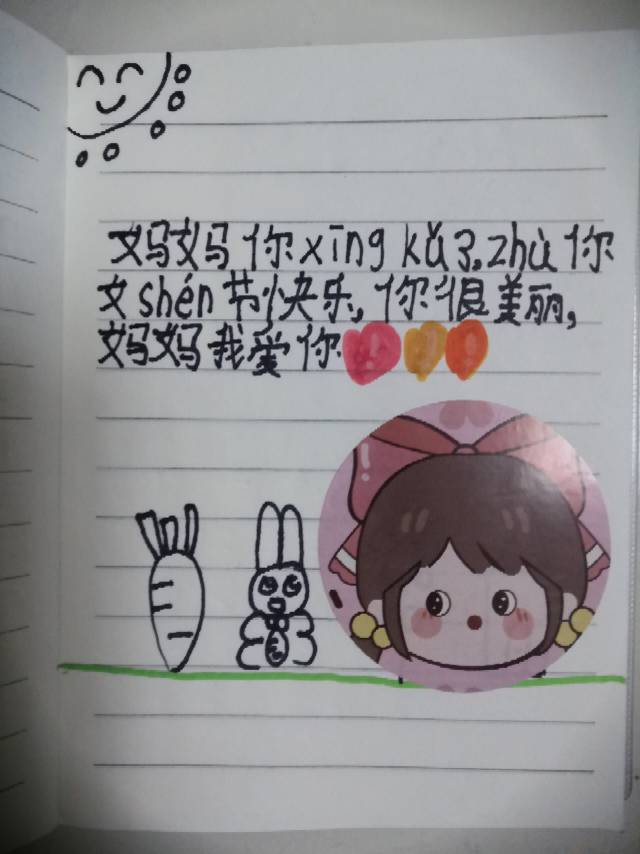 妈妈你xīng kǔ了,zhù你
女shén节快乐,你很美丽,
妈妈我爱你